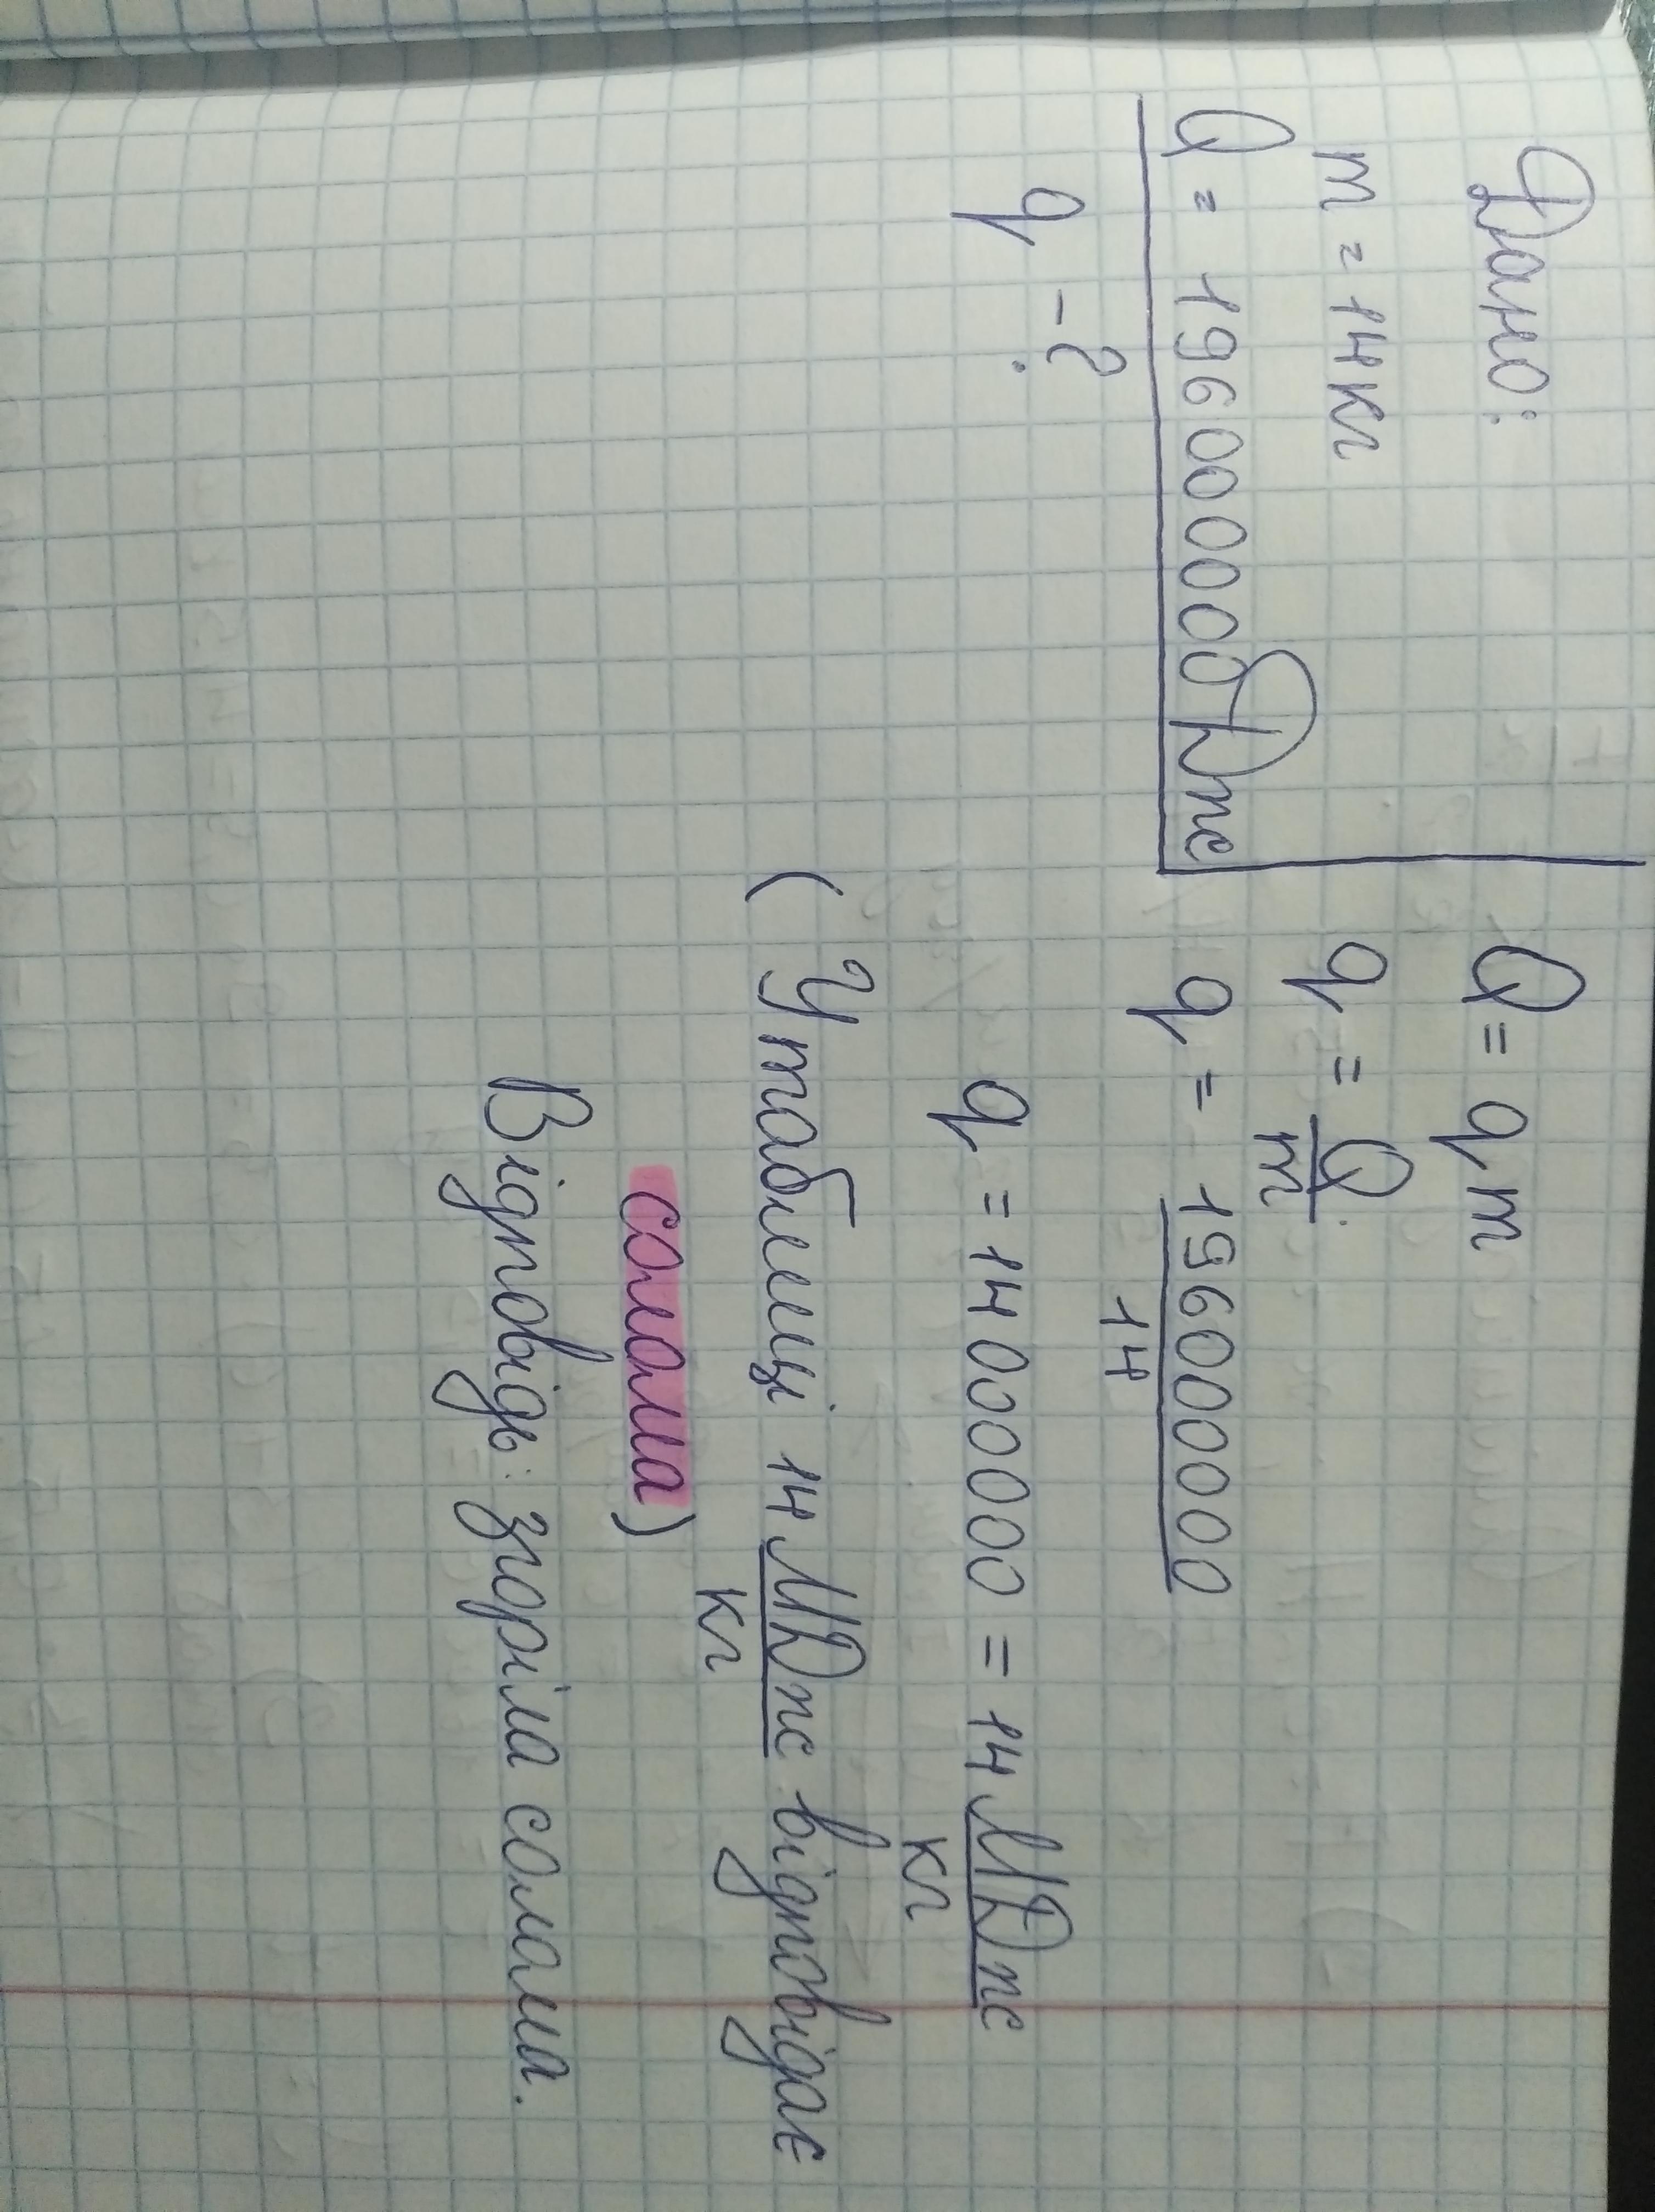 Дано:
m = 14кг
Q = 196000000Дж
q - ?
Q = qm
q = Q/m
q = 196000000/14
q = 14000000 = 14 МДж/кг
( У таблиці 14 МДж/кг відповідає
солома)
Відповідь: згоріла солома.